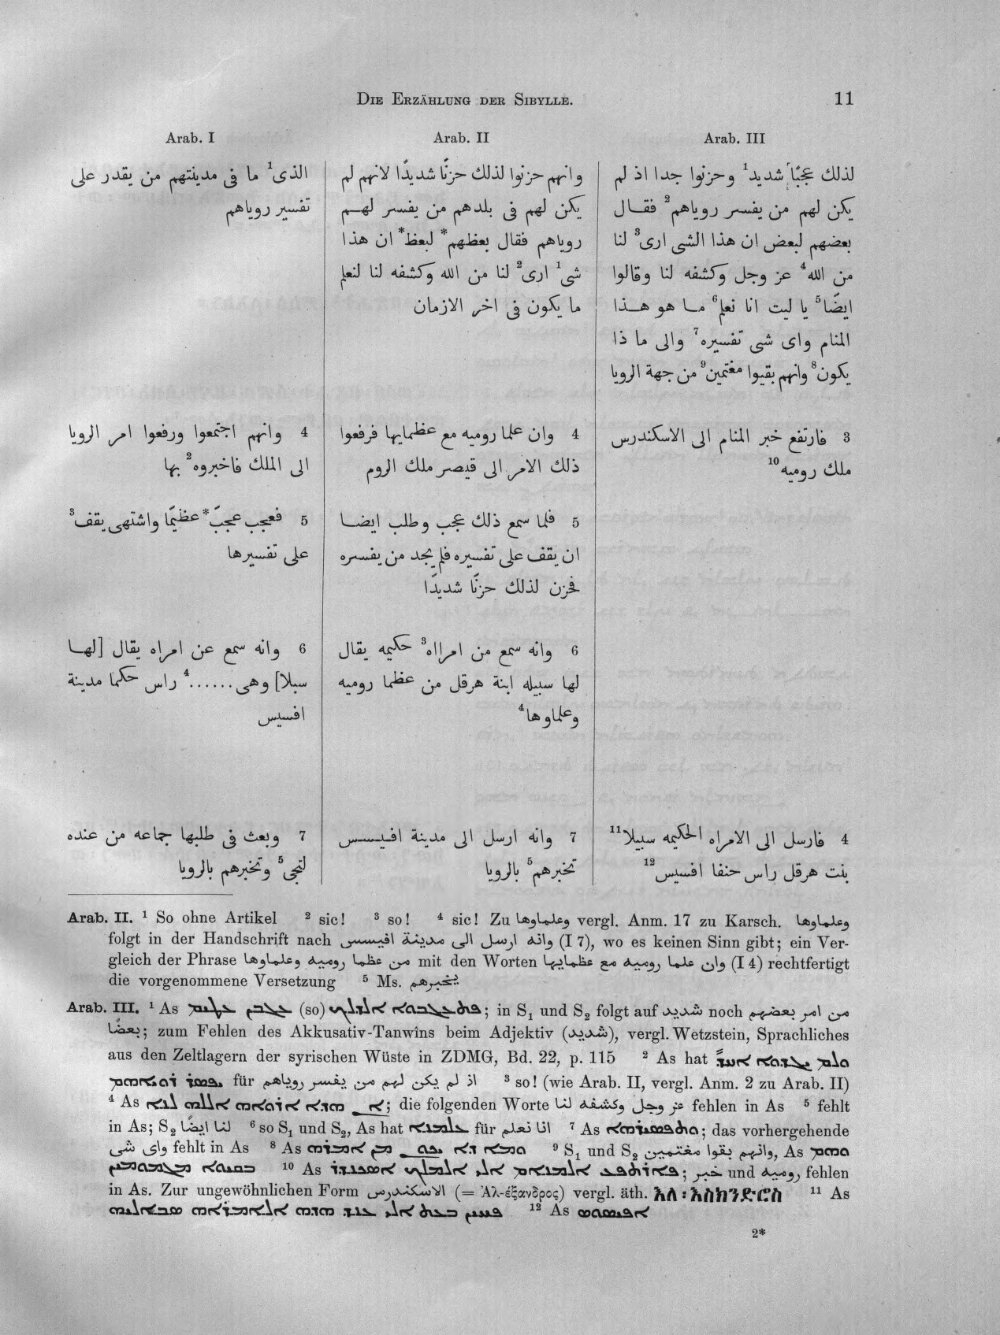 DIE ERZÄHLUNG DER SIBYLLE.
11
Arab. I
الذى¹ ما فى مدينتهم من يقدر على
تفسير روياهم
4 وانهم اجتمعوا ورفعوا امر الرويا
الى الملك فاخبروه² بها
5 فعجب عجبّ* عظيمًا واشتهى يقف³
على تفسيرها
6 وانه سمع عن امراه يقال [لها
سبلا] وهى......⁴ راس حكما مدينة
افسيس
7 وبعث فى طلبها جماعه من عنده
لتجى⁵ وتخبرهم بالرويا
Arab. II
وانهم حزنوا لذلك حزنًا شديدًا لانهم لم
يكن لهم فى بلدهم من يفسر لهم
روياهم فقال بعظهم* لبعظ* ان هذا
شى¹ ارى² لنا من الله وكشفه لنا لنعلم
ما يكون فى اخر الازمان
4 وان علما روميه مع عظمايها فرفعوا
ذلك الامر الى قيصر ملك الروم
5 فلما سمع ذلك عجب وطلب ايضا
ان يقف على تفسيره فلم يجد من يفسره
فحزن لذلك حزنًا شديدًا
6 وانه سمع من امرااه³ حكيمه يقال
لها سبيله ابنة هرقل من عظما روميه
وعلماوها⁴
7 وانه ارسل الى مدينة افيسس
تخبرهم⁵ بالرويا
Arab. III
لذلك عجبًا شديد¹ وحزنوا جدا اذ لم
يكن لهم من يفسر روياهم² فقال
بعضهم لبعض ان هذا الشى ارى³ لنا
من الله⁴ عز وجل وكشفه لنا وقالوا
ايضًا⁵ يا ليت انا نعلم⁶ ما هو هذا
المنام واى شى تفسيره⁷ والى ما ذا
يكون⁸ وانهم بقيوا مغتمين⁹ من جهة الرويا
3 فارتفع خبر المنام الى الاسكندرس
ملك روميه¹⁰
4 فارسل الى الامراه الحكيمه سبيلا¹¹
بنت هرقل راس حنفا افسيس¹²
Arab. II. ¹ So ohne Artikel ² sic! ³ so! ⁴ sic! Zu وعلماوها vergl. Anm. 17 zu Karsch. وعلماوها
folgt in der Handschrift nach وانه ارسل الى مدينة افيسس (I 7), wo es keinen Sinn gibt; ein Ver-
gleich der Phrase من عظما روميه وعلماوها mit den Worten وان علما روميه مع عظمايها (I 4) rechtfertigt
die vorgenommene Versetzung ⁵ Ms.
Arab. III. ¹ As (so); in S₁ und S₂ folgt auf شديد noch من امر بعضهم
بعضًا; zum Fehlen des Akkusativ-Tanwins beim Adjektiv (شديد), vergl. Wetzstein, Sprachliches
aus den Zeltlagern der syrischen Wüste in ZDMG, Bd. 22, p. 115 ² As hat
für اذ لم يكن لهم من يفسر روياهم ³ so! (wie Arab. II, vergl. Anm. 2 zu Arab. II)
⁴ As; die folgenden Worte عز وجل وكشفه لنا fehlen in As ⁵ fehlt
in As; S₂ لنا ايضًا ⁶ so S₁ und S₂, As hat für انا نعلم ⁷ As; das vorhergehende
واى شى fehlt in As ⁸ As ⁹ S₁ und S₂ وانهم بقوا مغتمين, As
¹⁰ As; خبر und روميه fehlen
in As. Zur ungewöhnlichen Form الاسكندرس (= Ἀλ-έξανδρος) vergl. äth. እለ ፡ እስክንድሮስ ¹¹ As
¹² As
2*